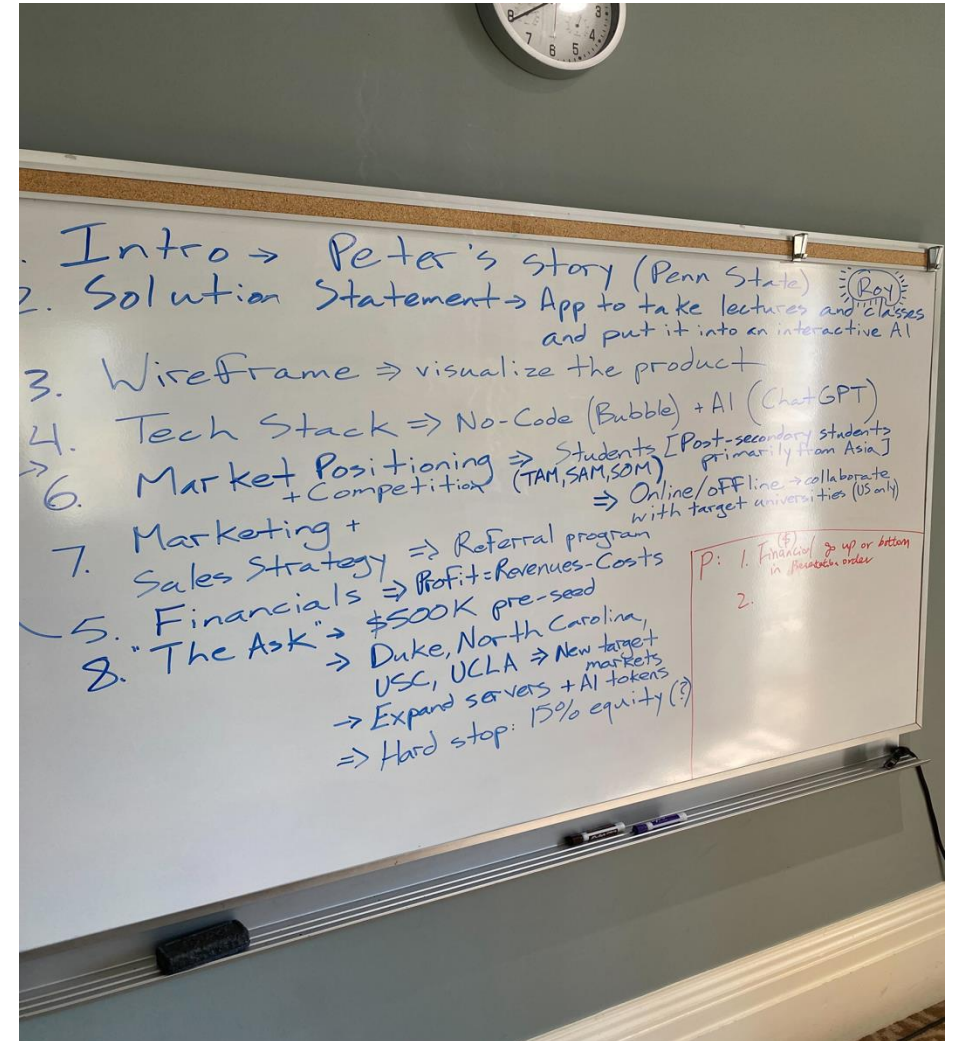 8 3
7 6 5 4
. Intro → Peter's story (Penn State)
Roy
2. Solution Statement → App to take lectures and classes
and put it into an interactive AI
3. Wireframe ⇒ visualize the product
4. Tech Stack ⇒ No-Code (Bubble) + AI (ChatGPT)
6. Market Positioning ⇒ Students [Post-secondary students
+ Competition (TAM, SAM, SOM) primarily from Asia]
⇒ Online/offline → collaborate
with target universities (US only)
7. Marketing +
Sales Strategy ⇒ Referral program
5. Financials ⇒ Profit = Revenues - Costs
8. "The Ask" → $500K pre-seed
→ Duke, North Carolina,
USC, UCLA ⇒ New target
markets
→ Expand servers + AI tokens
⇒ Hard stop: 15% equity (?)
P: 1. Financial ($) go up or bottom
in order
2.